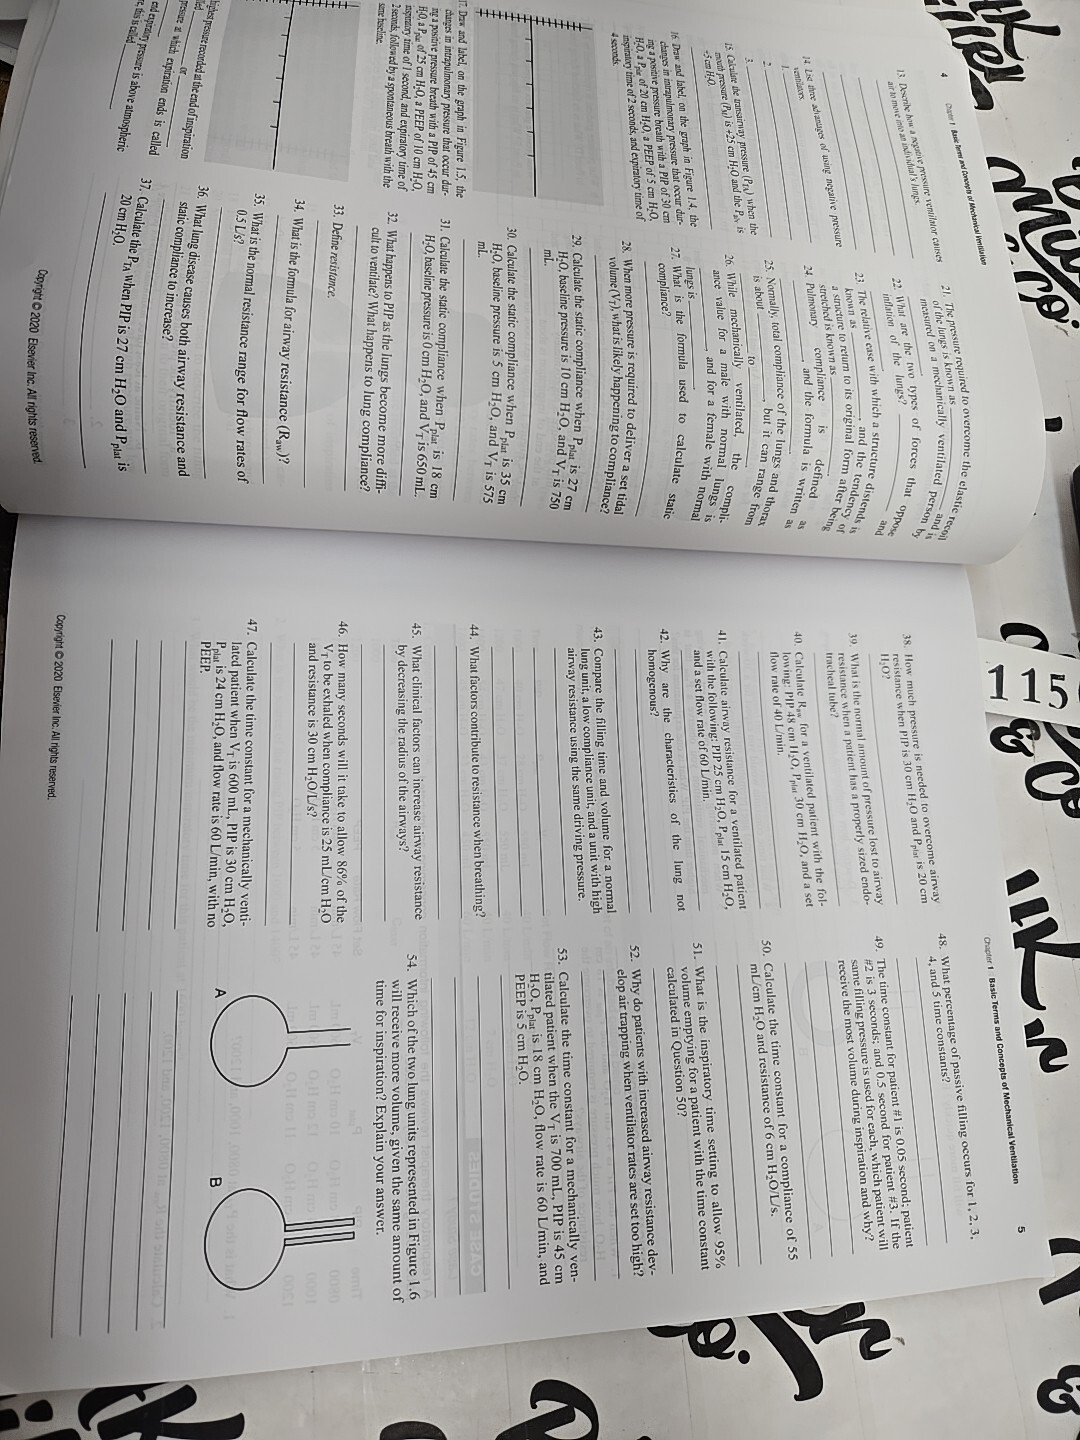 4 Chapter 1 Basic Terms and Concepts of Mechanical Ventilation
13. Describe how a negative pressure ventilator causes
air to move into an individual's lungs.
14. List three advantages of using negative pressure
ventilators.
1.
2.
3.
15. Calculate the transairway pressure (PTA) when the
mouth pressure (PM) is +25 cm H2O and the Palv is
+5 cm H2O.
16. Draw and label, on the graph in Figure 1.4, the
changes in intrapulmonary pressure that occur dur-
ing a positive pressure breath with a PIP of 30 cm
H2O, a Pplat of 20 cm H2O, a PEEP of 5 cm H2O,
inspiratory time of 2 seconds, and expiratory time of
4 seconds.
17. Draw and label, on the graph in Figure 1.5, the
changes in intrapulmonary pressure that occur dur-
ing a positive pressure breath with a PIP of 45 cm
H2O, a Pplat of 25 cm H2O, a PEEP of 10 cm H2O,
inspiratory time of 1 second, and expiratory time of
2 seconds, followed by a spontaneous breath with the
same baseline.
highest pressure recorded at the end of inspiration
or
pressure at which expiration ends is called
end expiratory pressure is above atmospheric
this is called
21. The pressure required to overcome the elastic recoil
of the lungs is known as and is
measured on a mechanically ventilated person by
22. What are the two types of forces that oppose
inflation of the lungs? and
23. The relative ease with which a structure distends is
known as , and the tendency of
a structure to return to its original form after being
stretched is known as
24. Pulmonary compliance is defined as
and the formula is written as
25. Normally, total compliance of the lungs and thorax
is about , but it can range from
to
26. While mechanically ventilated, the compli-
ance value for a male with normal lungs is
, and for a female with normal
lungs is
27. What is the formula used to calculate static
compliance?
28. When more pressure is required to deliver a set tidal
volume (VT), what is likely happening to compliance?
29. Calculate the static compliance when Pplat is 27 cm
H2O, baseline pressure is 10 cm H2O, and VT is 750
mL.
30. Calculate the static compliance when Pplat is 35 cm
H2O, baseline pressure is 5 cm H2O, and VT is 575
mL.
31. Calculate the static compliance when Pplat is 18 cm
H2O, baseline pressure is 0 cm H2O, and VT is 650 mL.
32. What happens to PIP as the lungs become more diffi-
cult to ventilate? What happens to lung compliance?
33. Define resistance.
34. What is the formula for airway resistance (Raw)?
35. What is the normal resistance range for flow rates of
0.5 L/s?
36. What lung disease causes both airway resistance and
static compliance to increase?
37. Calculate the PTA when PIP is 27 cm H2O and Pplat is
20 cm H2O.
Copyright © 2020 Elsevier Inc. All rights reserved.
115
Chapter 1 Basic Terms and Concepts of Mechanical Ventilation 5
38. How much pressure is needed to overcome airway
resistance when PIP is 30 cm H2O and Pplat is 20 cm
H2O?
39. What is the normal amount of pressure lost to airway
resistance when a patient has a properly sized endo-
tracheal tube?
40. Calculate Raw for a ventilated patient with the fol-
lowing: PIP 48 cm H2O, Pplat 30 cm H2O, and a set
flow rate of 40 L/min.
41. Calculate airway resistance for a ventilated patient
with the following: PIP 25 cm H2O, Pplat 15 cm H2O,
and a set flow rate of 60 L/min.
42. Why are the characteristics of the lung not
homogenous?
43. Compare the filling time and volume for a normal
lung unit, a low compliance unit, and a unit with high
airway resistance using the same driving pressure.
44. What factors contribute to resistance when breathing?
45. What clinical factors can increase airway resistance
by decreasing the radius of the airways?
46. How many seconds will it take to allow 86% of the
VT to be exhaled when compliance is 25 mL/cm H2O
and resistance is 30 cm H2O/L/s?
47. Calculate the time constant for a mechanically venti-
lated patient when VT is 600 mL, PIP is 30 cm H2O,
Pplat is 24 cm H2O, and flow rate is 60 L/min, with no
PEEP.
48. What percentage of passive filling occurs for 1, 2, 3,
4, and 5 time constants?
49. The time constant for patient #1 is 0.05 second; patient
#2 is 3 seconds; and 0.5 second for patient #3. If the
same filling pressure is used for each, which patient will
receive the most volume during inspiration and why?
50. Calculate the time constant for a compliance of 55
mL/cm H2O and resistance of 6 cm H2O/L/s.
51. What is the inspiratory time setting to allow 95%
volume emptying for a patient with the time constant
calculated in Question 50?
52. Why do patients with increased airway resistance dev-
elop air trapping when ventilator rates are set too high?
53. Calculate the time constant for a mechanically ven-
tilated patient when the VT is 700 mL, PIP is 45 cm
H2O, Pplat is 18 cm H2O, flow rate is 60 L/min, and
PEEP is 5 cm H2O.
54. Which of the two lung units represented in Figure 1.6
will receive more volume, given the same amount of
time for inspiration? Explain your answer.
A
B
Copyright © 2020 Elsevier Inc. All rights reserved.